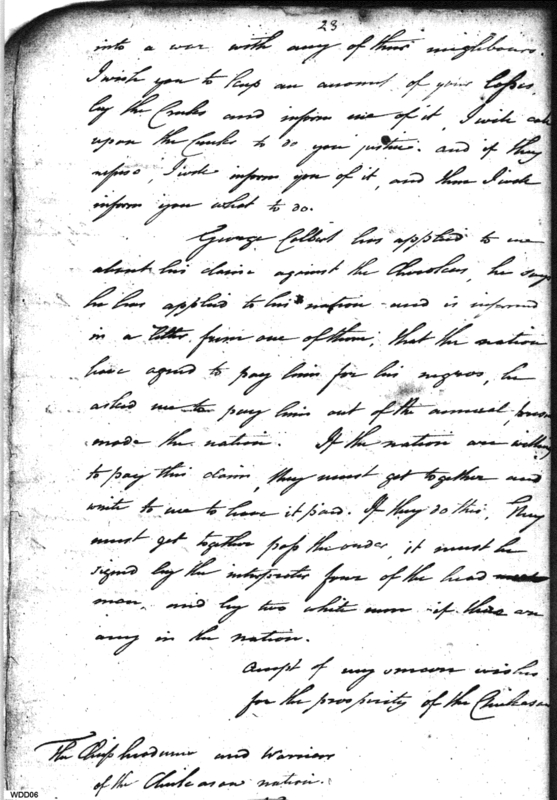 23
into a war with any of their neighbours.
I wish you to keep an account of your losses,
by the Creeks and inform me of it, I will call
upon the Creeks to do you justice. and if they
refuse, I will inform you of it, and then I will
inform you what to do.
George Colbert has applied to me
about his claim against the Cherokees, he says
he has applied to his nation and is informed
in a letter from one of them, that the nation
have agreed to pay him for his negros, he
asked me to pay him out of the annual
made the nation. If the nation are willing
to pay this claim, they must get together and
write to me to have it paid. If they do this, they
must get together pass the order, it must be
signed by the interpreter four of the head
men, and by two white men if there are
any in the nation.
accept of my sincere wishes
for the prosperity of the Chickasaw
The Chiefs headmen and warriors
of the Chickasaw nation.
WDD06